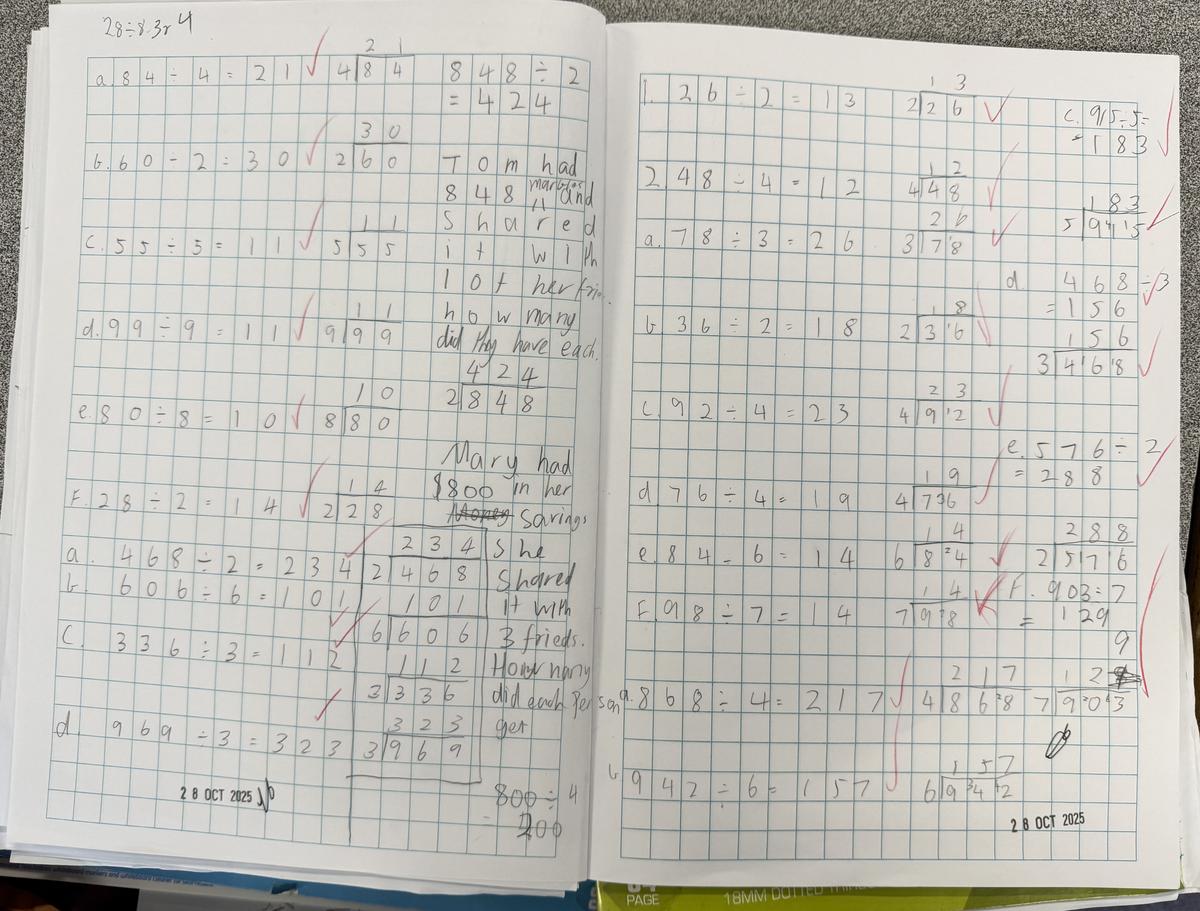 28÷8.3r4
a. 84÷4=21
21
4 84
b. 60÷2=30
30
2 60
c. 55÷5=11
11
5 55
d. 99÷9=11
11
9 99
e. 80÷8=10
10
8 80
F. 28÷2=14
14
2 28
a. 468÷2=234
234
2 468
b. 606÷6=101
101
6 606
c. 336÷3=112
112
3 336
d. 969÷3=323
323
3 969
28 OCT 2025
848÷2
=424
Tom had
848 marbles and
shared
it with
1 of her
how many
did they have each.
424
2 848
Mary had
$800 in her
savings
She
shared
it with
3 frieds.
How many
did each person
get
800÷4
200
1. 26÷2=13
13
2 26
2. 48÷4=12
12
4 48
a. 78÷3=26
26
3 7¹8
b. 36÷2=18
18
2 3¹6
c. 92÷4=23
23
4 9¹2
d 76÷4=19
19
4 7³6
e. 84-6=14
14
6 8²4
F. 98÷7=14
14
7 9²8
a. 868÷4=217
217
4 86²8
b 942÷6=157
157
6 9³4⁴2
c. 915÷5=
=183
183
5 9⁴1¹5
d 468÷3
=156
156
3 4¹6¹8
e. 576÷2
=288
288
2 5¹7¹6
F. 903÷7
=129
9
12
7 9²0⁶3
28 OCT 2025
PAGE
18MM DOTTED THIRDS